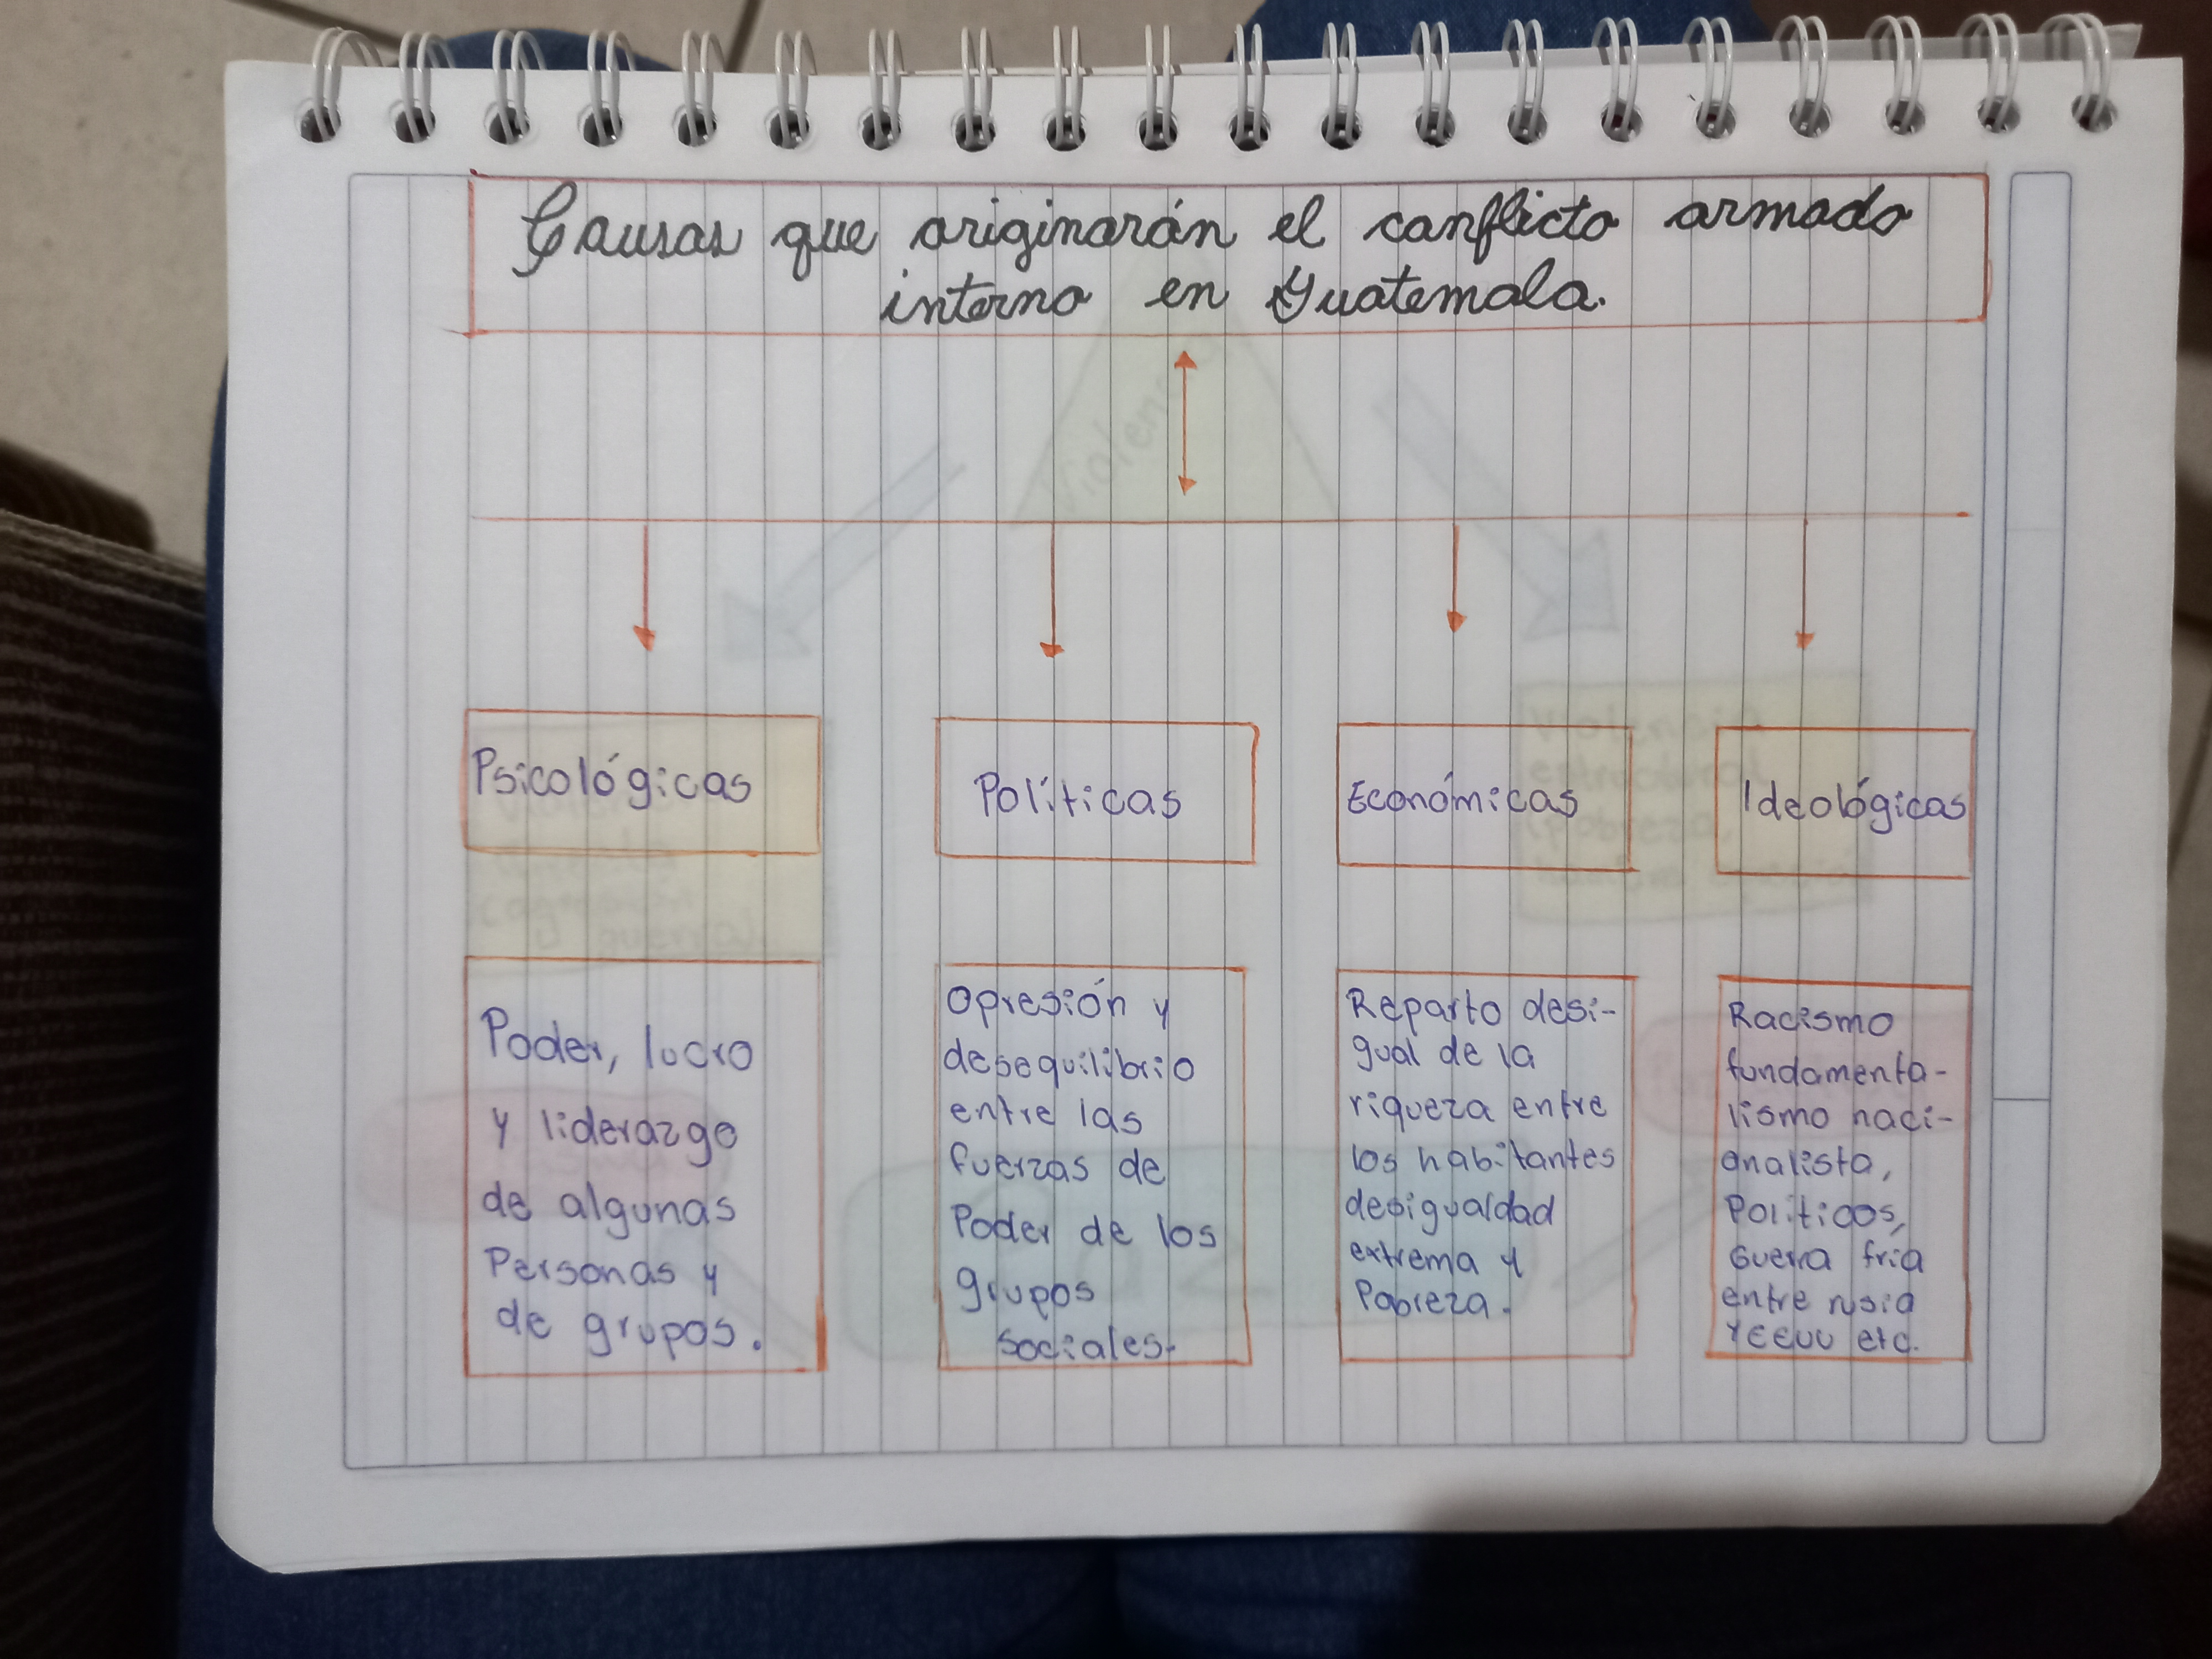 Causas que originarán el conflicto armado
interno en Guatemala.
Psicológicas
Políticas
Económicas
Ideológicas
Poder, lucro
y liderazgo
de algunas
Personas y
de grupos.
Opresión y
desequilibrio
entre las
fuerzas de
Poder de los
grupos
sociales.
Reparto desi-
gual de la
riqueza entre
los habitantes
desigualdad
extrema y
Pobreza.
Racismo
fundamenta-
lismo naci-
onalista,
Políticos,
Guerra fría
entre rusia
YEEUU etc.
Violencia